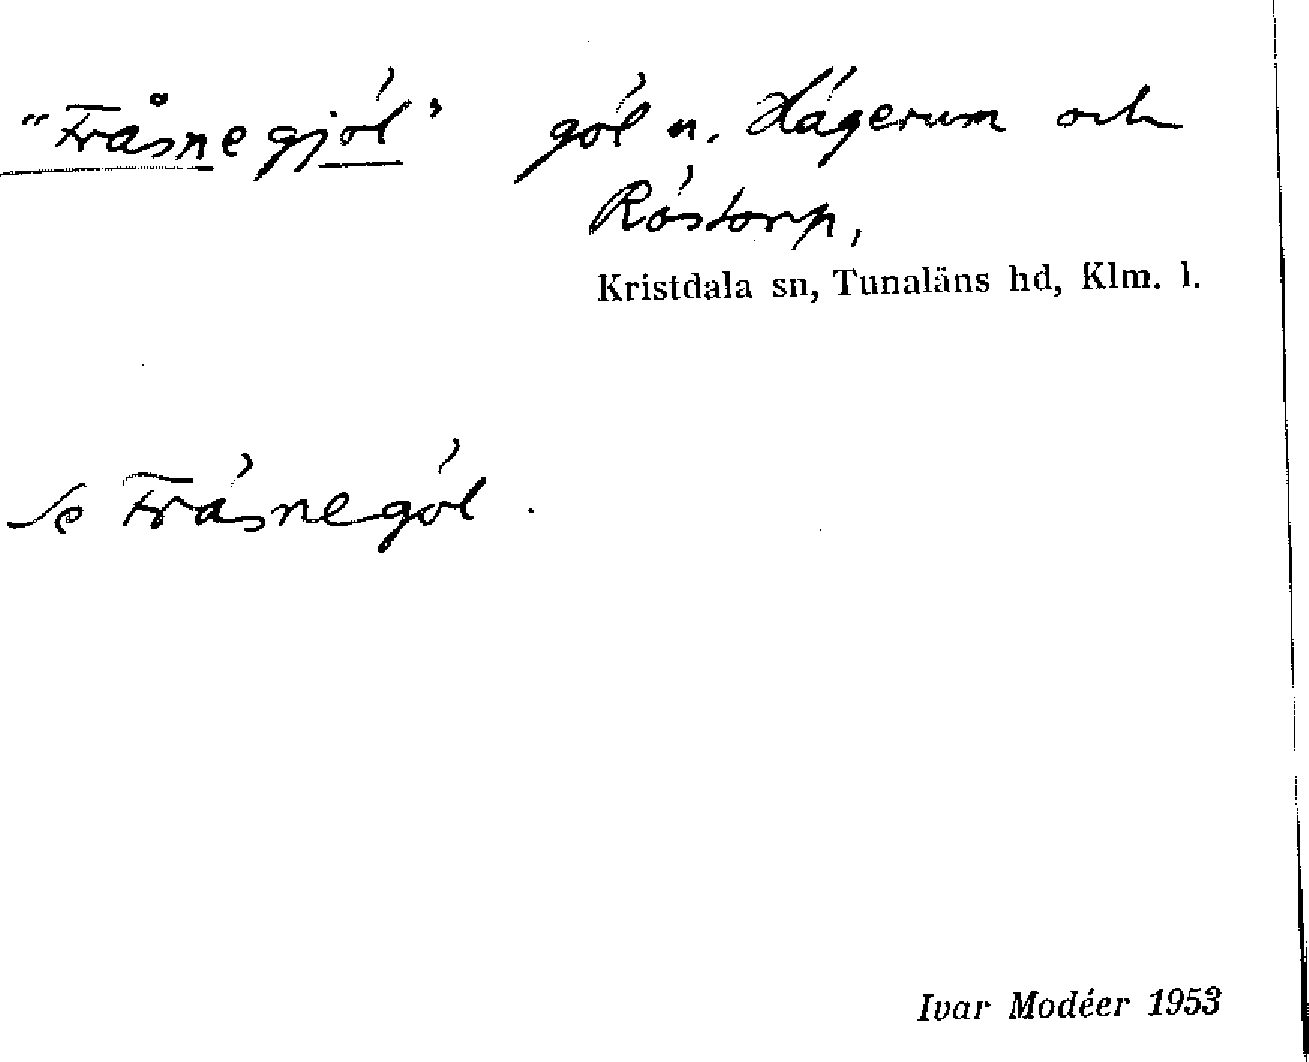 "Fråsnegjöl" göl n. Hägerum och
Röstorp,
Kristdala sn, Tunaläns hd, Klm. l.
Se Fräsnegöl.
Ivar Modéer 1953